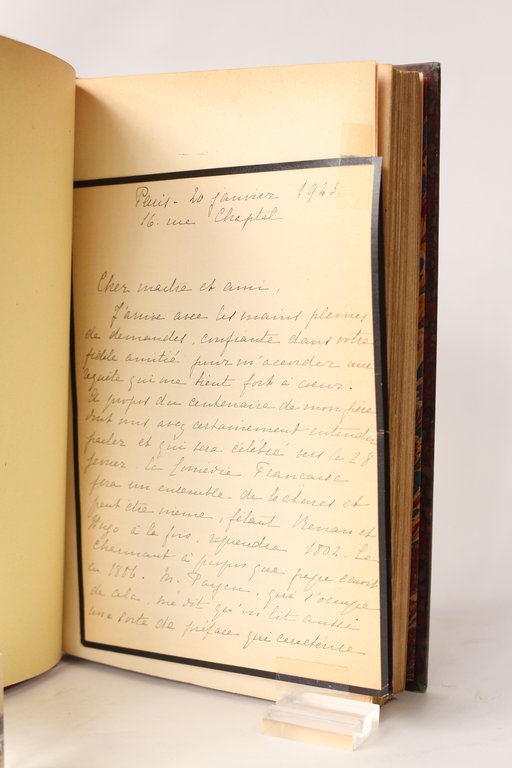 Paris - 20 janvier 1923
16. rue Chaptal
Cher maître et ami,
J'arrive avec les mains pleines
de demandes, confiante dans votre
fidèle amitié pour m'accorder une
requête qui me tient fort à coeur.
A propos du centenaire de mon père
dont vous avez certainement entendu
parler et qui sera célébré vers le 28
février. la Comédie Française
fera un ensemble de lectures et
peut être même, fêtant Renan et
Hugo à la fois, reprendra 1802. Le
charmant à propos que papa écrivit
en 1886. M. Payen, qui s'occupe
de cela, me dit qu'on lit aussi
une sorte de préface qui